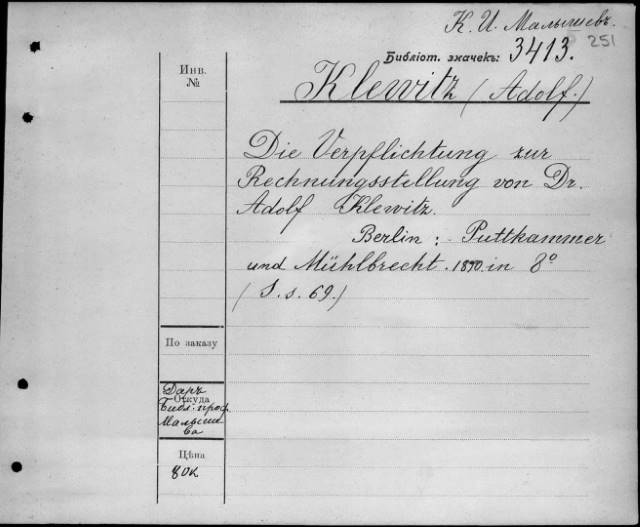 К. И. Малышевъ.
251
Библіот. значекъ: 3413.
Инв.
№
Klewitz (Adolf.)
Die Verpflichtung zur
Rechnungsstellung von Dr.
Adolf Klewitz.
Berlin: Puttkammer
und Mühlbrecht. 1890. in 8º
(S. s. 69.)
По заказу
Даръ
Откуда
Библ: проф.
Малыше
ва
Цѣна
80к